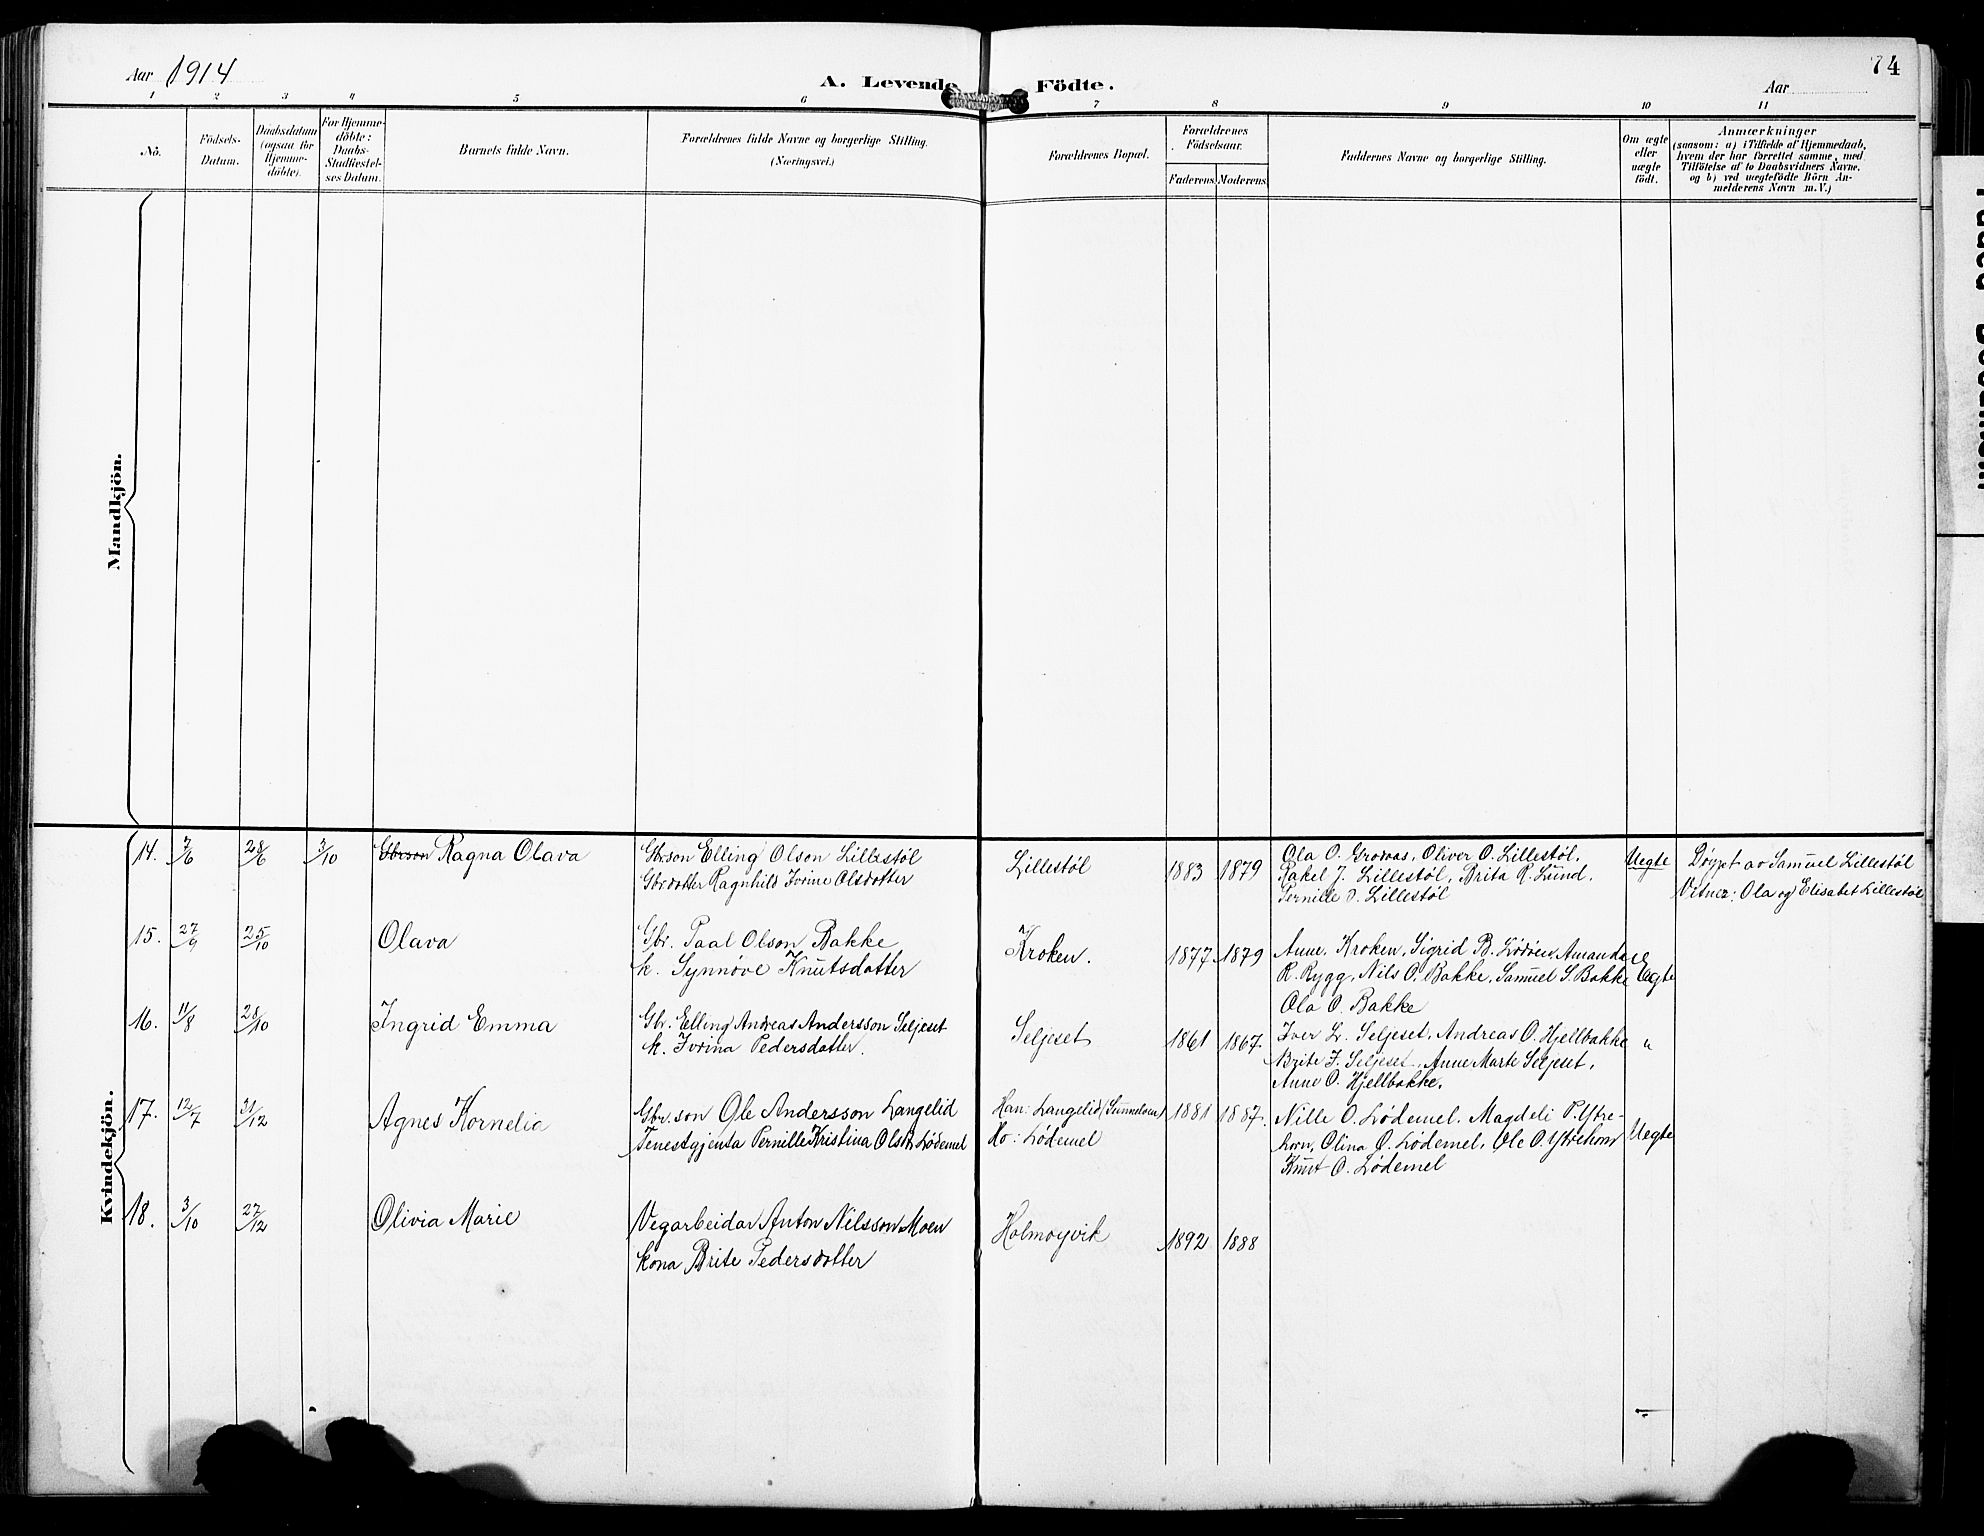 Aar 1914
A. Levende Födte.
Aar
74
1 2 3 4 5 6 7 8 9 10 11
No.
Födsels-
Datum.
Daabsdatum
(ogsaa for
Hjemme-
döbte).
For Hjemme-
döbte:
Daabs-
Stadfæstel-
ses Datum.
Barnets fulde Navn.
Forældrenes fulde Navne og borgerlige Stilling.
(Næringsvei.)
Forældrenes Bopæl.
Forældrenes
Födselsaar.
Faderens. Moderens.
Faddernes Navne og borgerlige Stilling.
Om ægte
eller
uægte
født.
Anmærkninger
(saasom: a) i Tilfælde af Hjemmedaab,
hvem der har forrettet samme, med
Tilföielse af to Daabsvidners Navne,
og b) ved uægtefödte Börn An-
melderens Navn m. V.)
Mandkjön.
Kvindekjön.
14. 7/6 28/6 3/10 Gbrson Ragna Olava
Gbrson Elling Olson Lillestøl
Gbrdotter Ragnhild Ivrine Olsdotter
Lillestöl 1883 1879
Ola O. Grovas, Oliver O. Lillestøl,
Rakel J. Lillestøl, Brita R. Lund.
Pernille O. Lillestöl
Uegte
Døypt av Samuel Lillestöl
Vitner: Ola og Elisabet Lillestøl
15. 27/9 25/10 Olava
Gbr. Paal Olson Bakke
k. Synnöve Knutsdotter
Kroken. 1877 1879
Anne Kroken, Sigrid B. Lødöen, Amanda
R. Rygg, Nils O. Bakke, Samuel S. Bakke
Ola O. Bakke
Egte
16. 11/8 28/10 Ingrid Emma
Gbr. Elling Andreas Andersson Seljeset
k. Ivrina Pedersdotter.
Seljeset 1861 1867
Iver L. Seljeset, Andreas O. Hjellbakke
Brite J. Seljeset, Anne Marte Seljeset,
Anne O. Hjellbakke.
"
17. 12/7 31/12 Agnes Kornelia
Gbr.son Ole Andersson Langelid
Tenestgjenta Pernille Kristina Olsdt. Lødemel
Han: Langelid (Sunnelven)
Ho: Lødemel
1881 1887.
Nille O. Lødemel, Magdeli P. Ytre-
horn, Olina O. Lødemel, Ole O. Ytrehorn
Knut O. Lødemel
Uegte
18. 3/10 27/12 Olivia Marie
Vegarbeidar Anton Nilsson Moen
kona Brite Pedersdotter
Holmøyvik 1892 1888